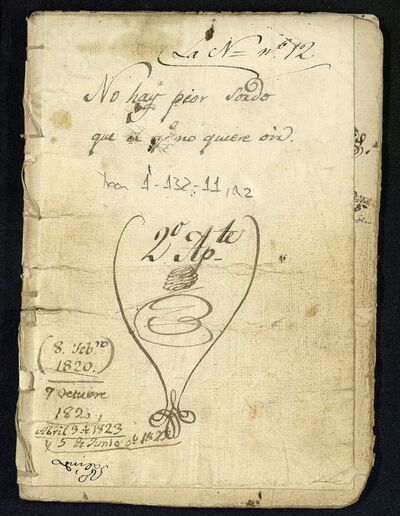 La N= n.º 12
No hay peor Sordo
que el q.e no quiere oir.
Tea 1-132-11, a2
2º Ap.te
8. Feb.ro
1820.
7 Octubre
182
Abril 3 de 1823
y 5 de Junio de 182